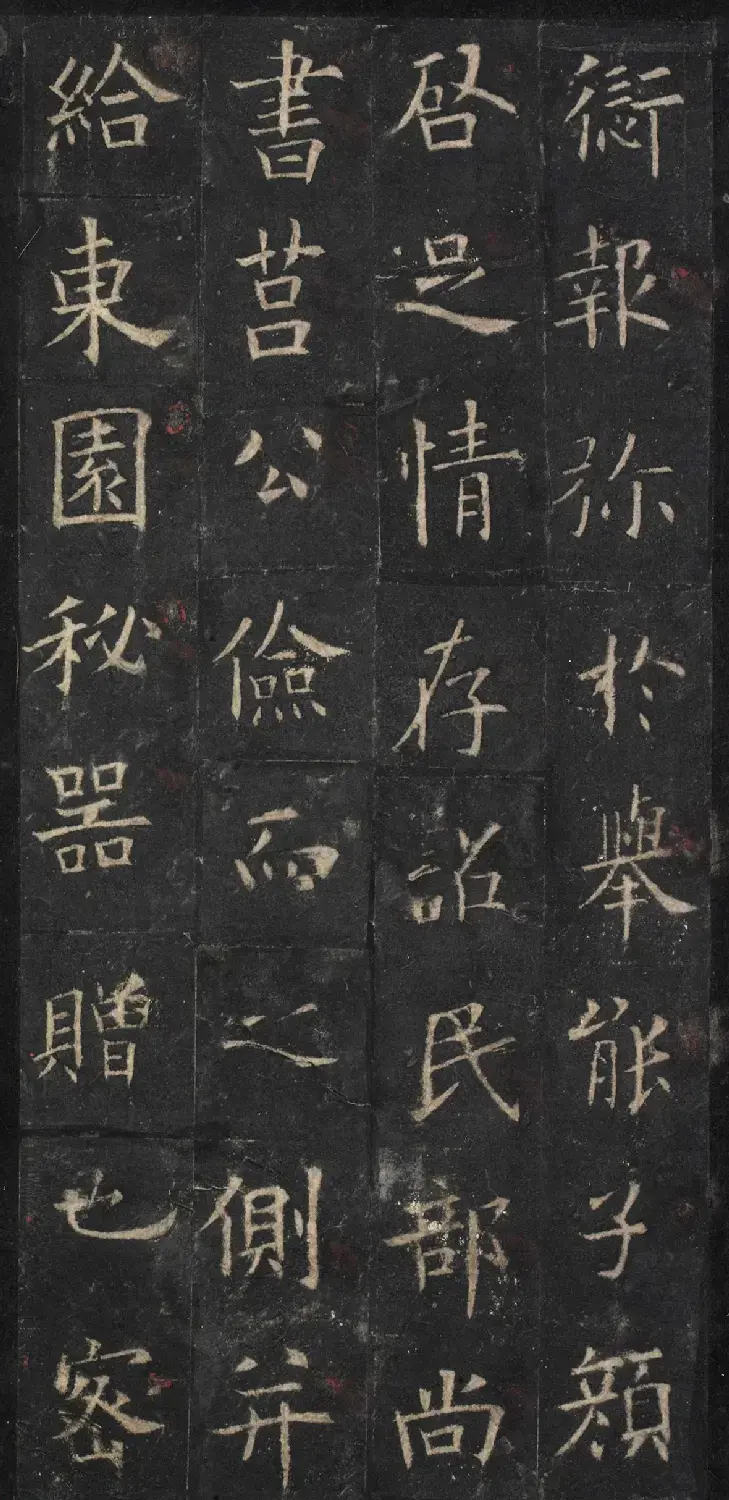 愆報弥於舉能子顔
啓足情存詔民部尚
書莒公儉而之側并
給東園秘器贈也密